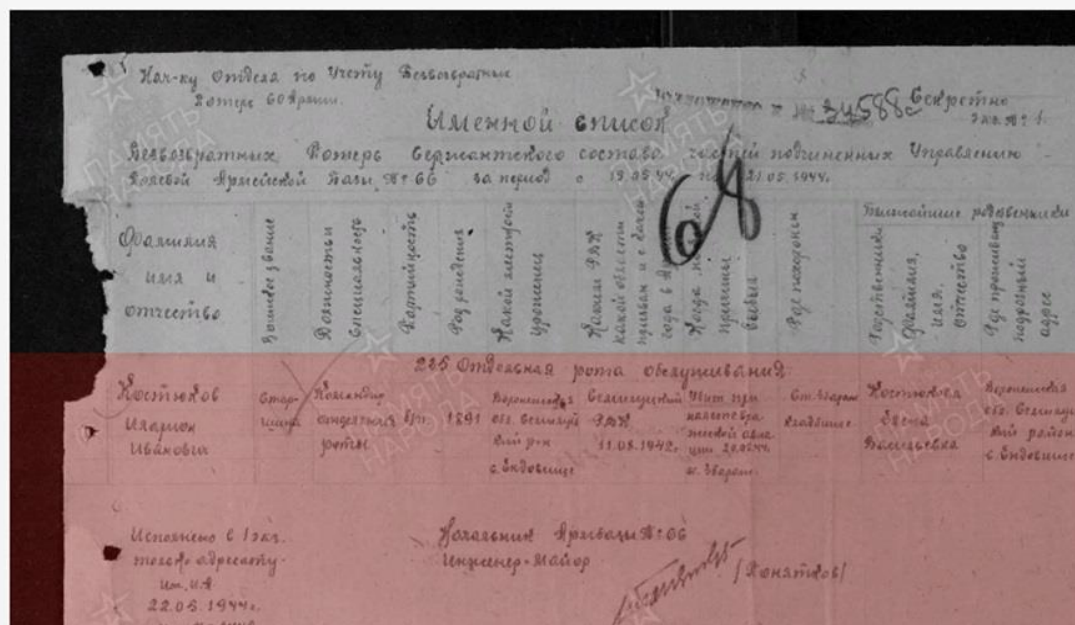 Нач-ку отдела по учету Безвозвратных
Потерь 60 Армии.
№ 34588с Секретно
Экз. № 1.
Именной список
Безвозвратных Потерь Сержантского состава частей подчиненных Управлению
Полевой Армейской Базы № 66 за период с по 21.05.1944г.
Фамилия
имя и
отчество
Воинское звание
Должность и
специальность
Партийность
Год рождения
Какой местности
уроженец
Каким РВК
какой области
призван и с какого
года в
Когда
причины
выбыл
Где похоронен
Ближайшие родственники
Родственники
Фамилия,
имя,
отчество
Где проживает
подробный
адрес
68
225 Отдельная рота обслуживания
Костюков
Иларион
Иванович
Стар-
шина
Командир
отделения
роты
б/п
1891
Воронежская
обл.
р-н
с. Ендовище
РВК
11.08.1942г.
Убит при
налете вра-
жеской авиа-
ции 20.05.44
ж. Збараж
Ст. Збараж
кладбище
Костюкова
Елена
Васильевна
Воронежская
обл.
район
с. Ендовище
Исполнено в 1 экз.
только адресату.
22.05.1944г.
Начальник Армбазы № 66
Инженер-Майор
ПАМЯТЬ
НАРОДА